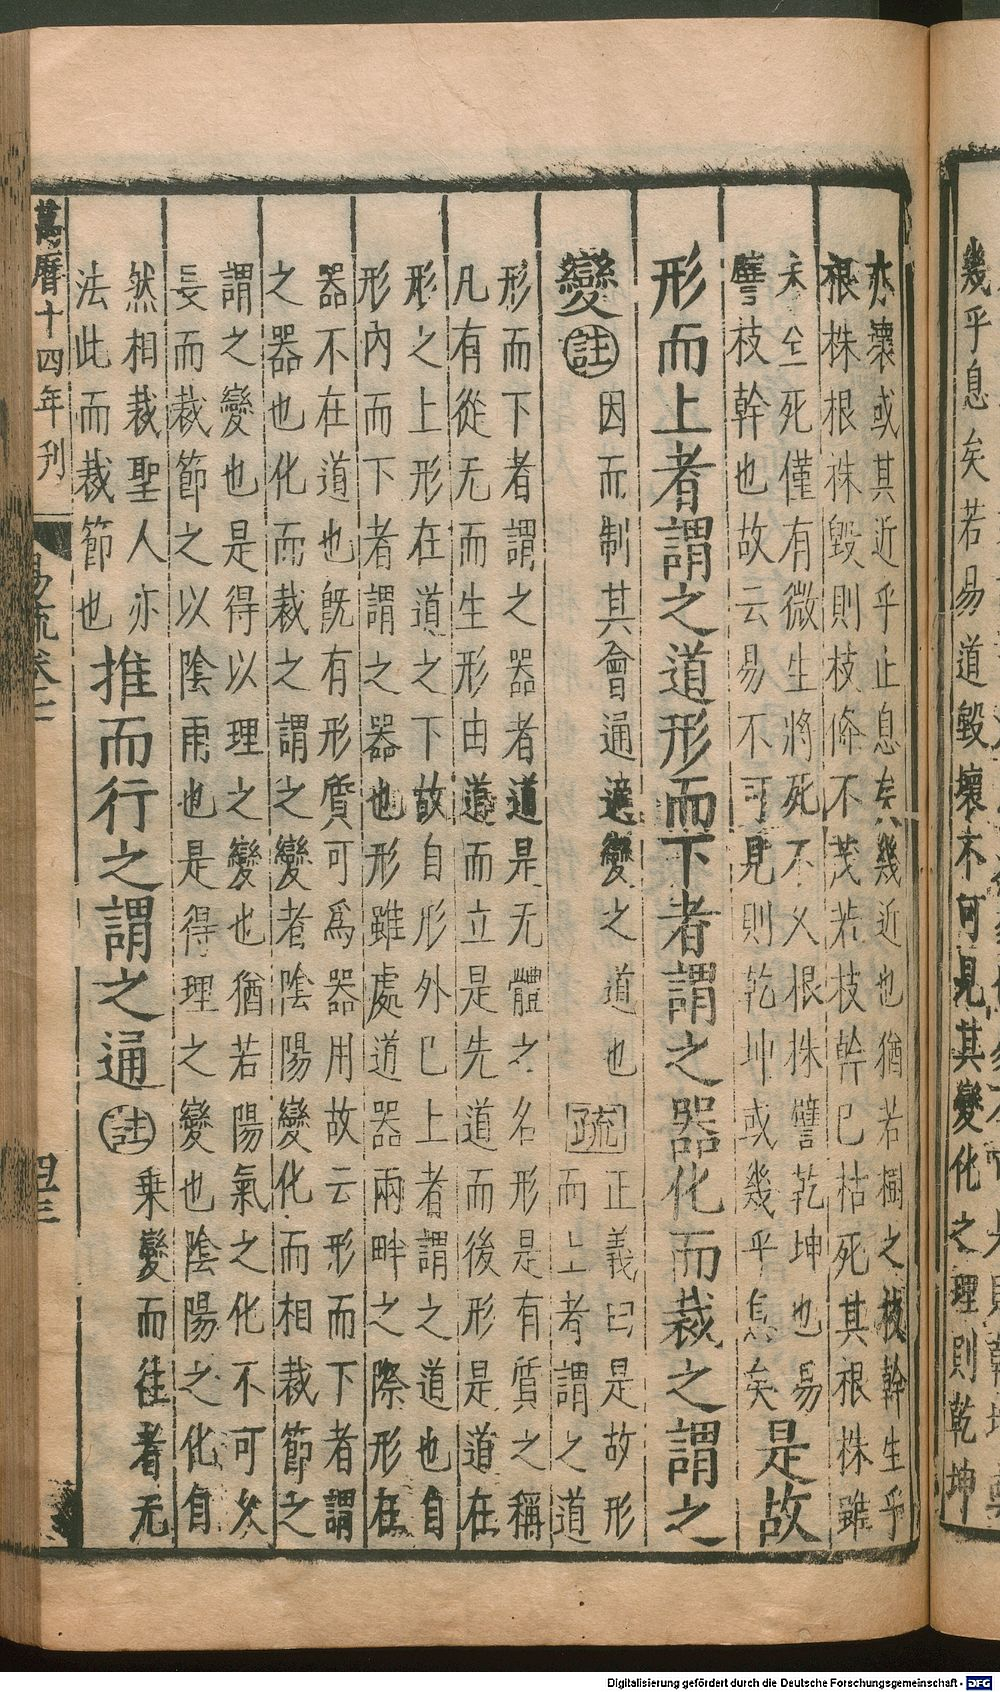 幾乎息矣若易道毀壞不可見其變化之理則乾坤
亦壞或其近乎止息矣幾近也猶若樹之枝幹生乎
根株根株毀則枝條不茂若枝幹已枯死其根株雖
未全死僅有微生將死不久根株譬乾坤也易
譬枝幹也故云易不可見則乾坤或幾乎息矣
是故
形而上者謂之道形而下者謂之器化而裁之謂之
變 註 因而制其會通適變之道也 疏 正義曰是故形
而上者謂之道
形而下者謂之器者道是无體之名形是有質之稱
凡有從无而生形由道而立是先道而後形是道在
形之上形在道之下故自形外已上者謂之道也自
形內而下者謂之器也形雖處道器兩畔之際形在
器不在道也旣有形質可爲器用故云形而下者謂
之器也化而裁之謂之變者陰陽變化而相裁節之
謂之變也是得以理之變也猶若陽氣之化不可久
長而裁節之以陰雨也是得理之變也陰陽之化自
然相裁聖人亦
法此而裁節也
推而行之謂之通 註 乘變而往者无
萬曆十四年刊 易疏卷 四三
Digitalisierung gefördert durch die Deutsche Forschungsgemeinschaft - DFG